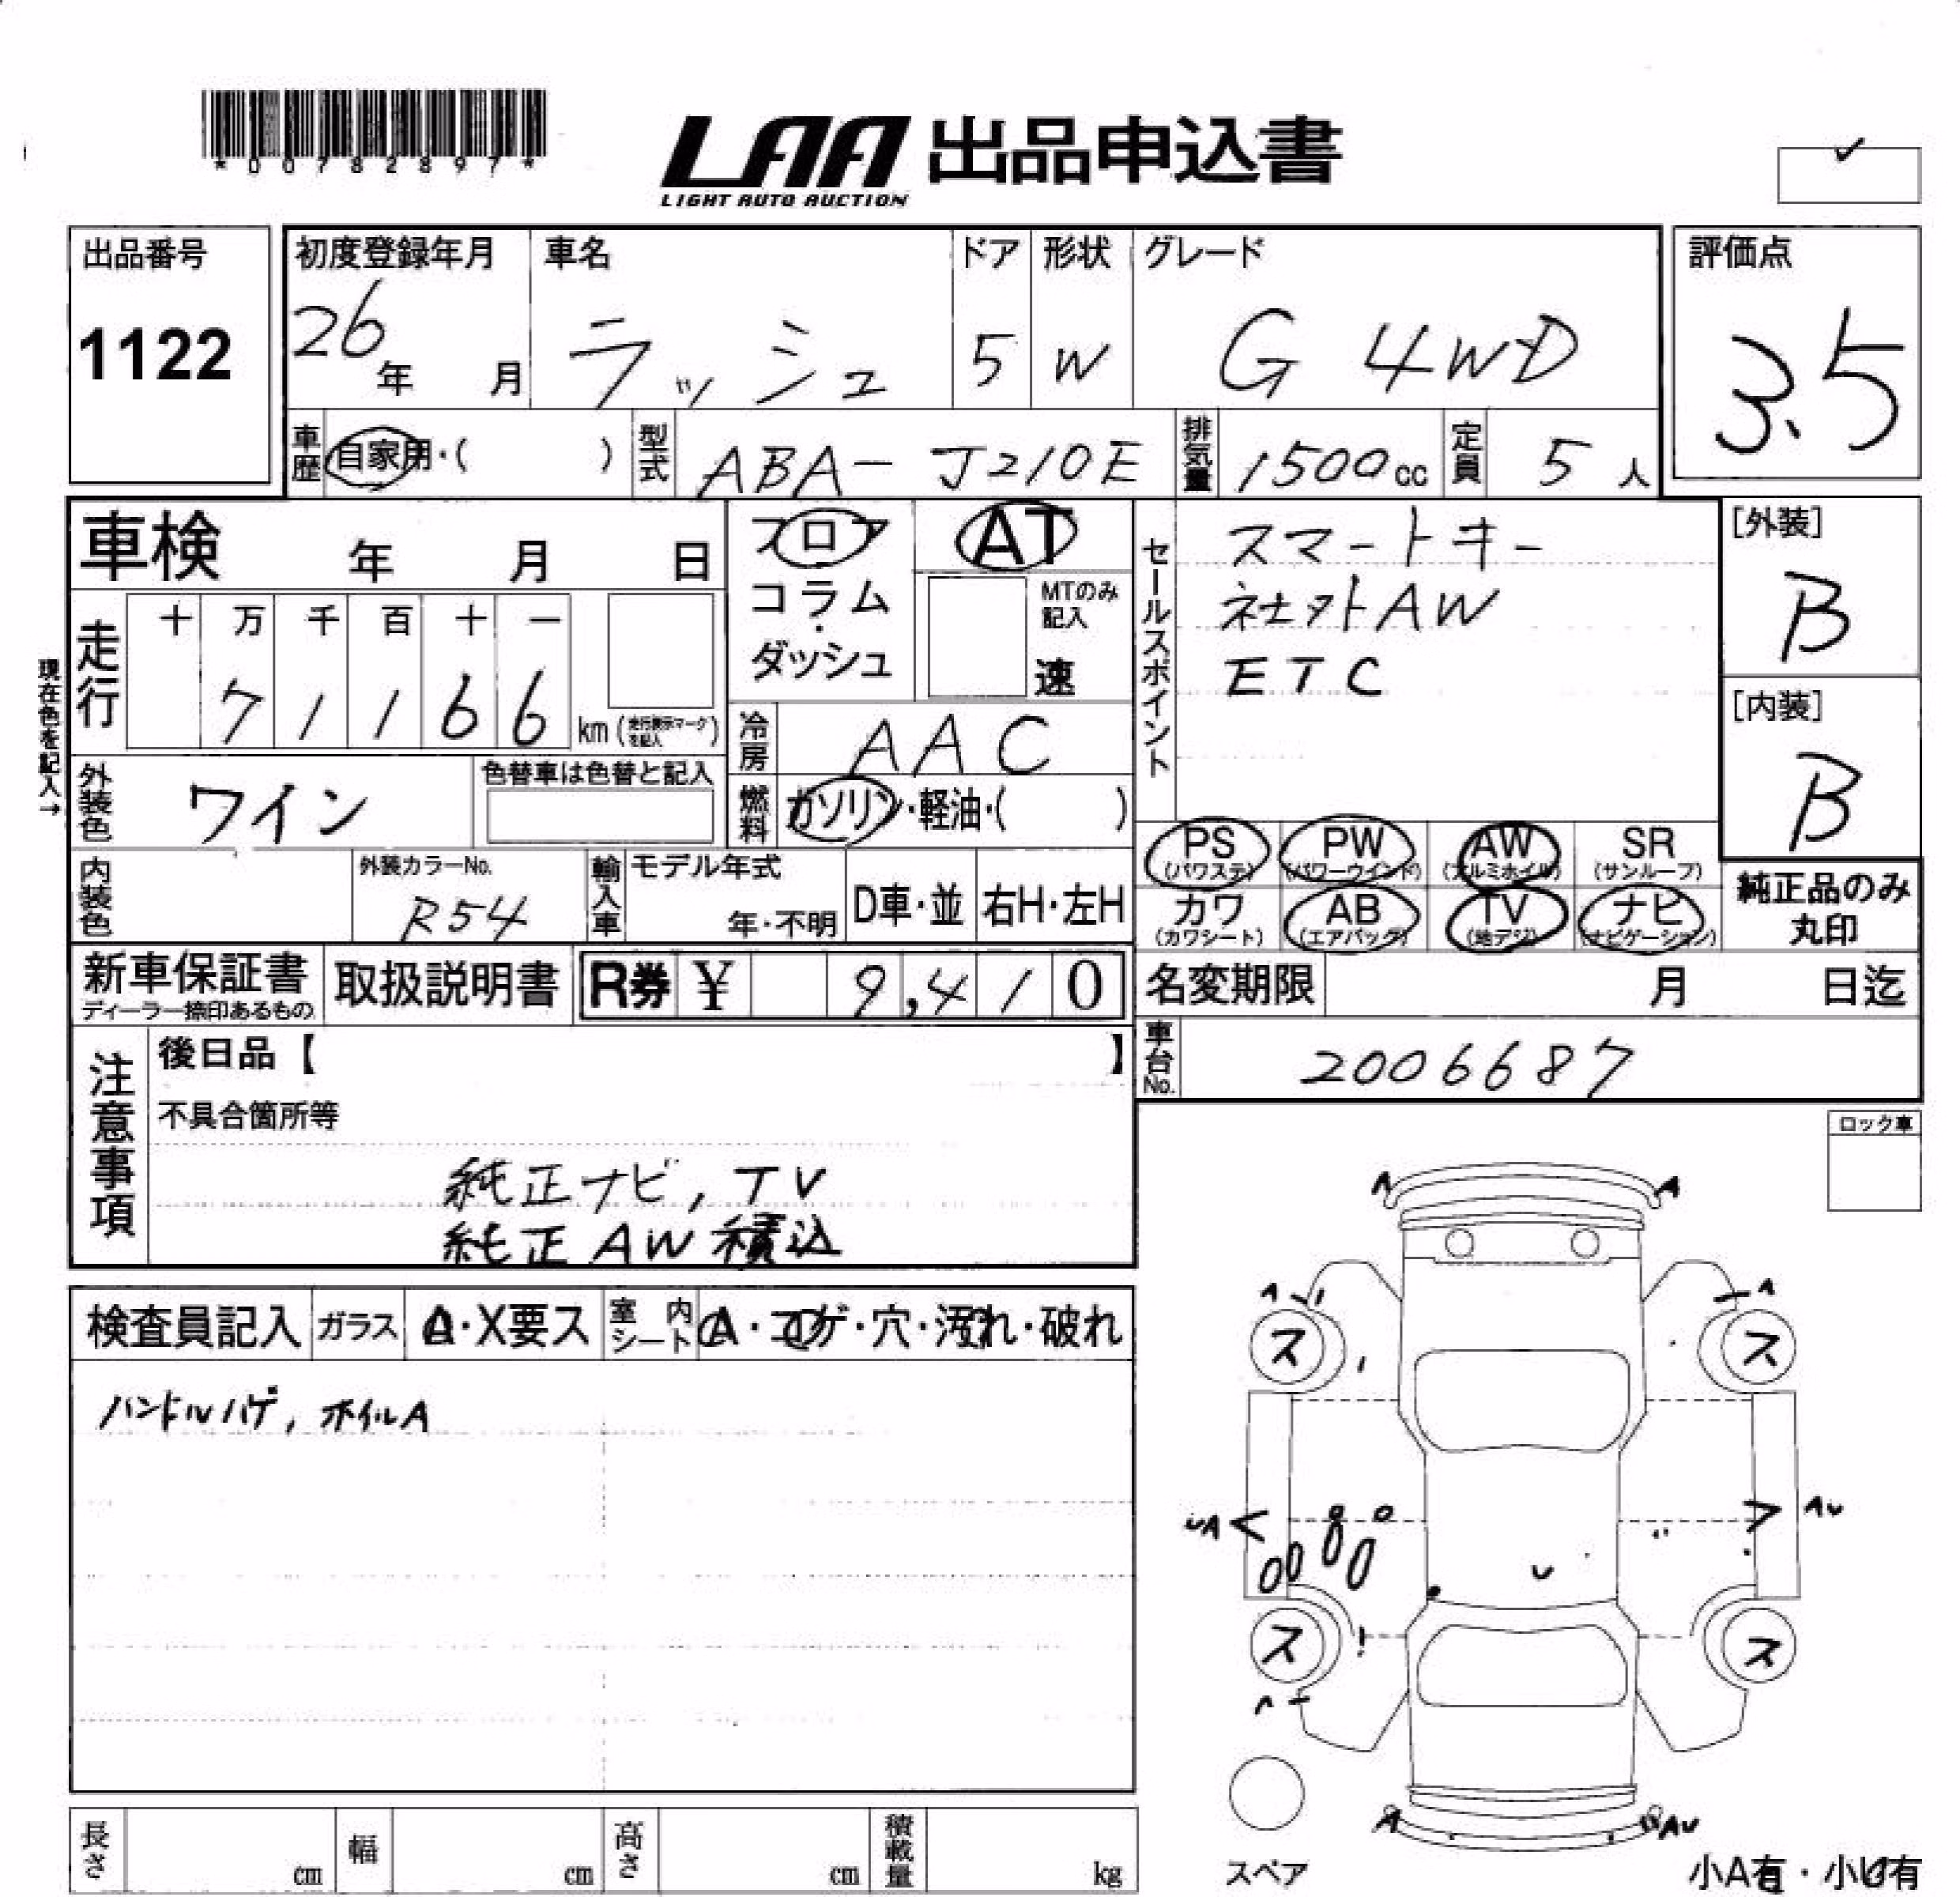 *00782897*
LAA 出品申込書
LIGHT AUTO AUCTION
出品番号
1122
初度登録年月
26年 月
車名
ラッシュ
ドア
5
形状
W
グレード
G 4WD
評価点
3.5
車歴 自家用・( )
型式 ABA-J210E
排気量 1500cc
定員 5人
車検 年 月 日
フロア
コラム・
ダッシュ
AT
MTのみ
記入
速
セールスポイント
スマートキー
社外AW
ETC
[外装]
B
[内装]
B
現在色を記入→
走行
十 万 千 百 十 一
7 1 1 6 6 km (走行表示マークを記入)
冷房 AAC
外装色 ワイン
色替車は色替と記入
燃料 ガソリン・軽油・( )
PS (パワステ)
PW (パワーウインド)
AW (アルミホイル)
SR (サンルーフ)
カワ (カワシート)
AB (エアバッグ)
TV (地デジ)
ナビ (ナビゲーション)
純正品のみ
丸印
内装色
外装カラーNo.
R54
輸入車
モデル年式
年・不明
D車・並
右H・左H
新車保証書
ディーラー捺印あるもの
取扱説明書
R券 ¥ 9,410
名変期限 月 日迄
車台No. 2006687
注意事項
後日品【 】
不具合箇所等
純正ナビ, TV
純正AW積込
ロック車
検査員記入
ガラス A・X要ス
室内シート A・コゲ・穴・汚れ・破れ
ハンドルハゲ, ホイルA
A A
A A
ス ス
UA AU
ス ス
A
A AU
スペア
小A有・小U有
長さ cm
幅 cm
高さ cm
積載量 kg